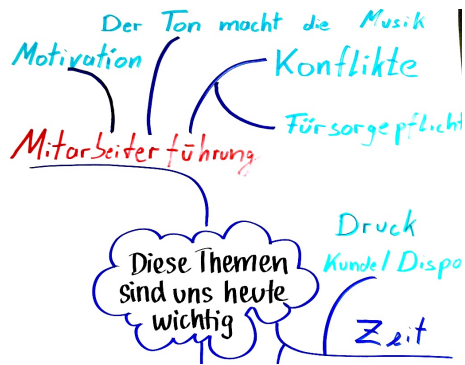 Der Ton macht die Musik
Motivation
Konflikte
Fürsorgepflicht
Mitarbeiterführung
Druck
Kunde/Dispo
Diese Themen
sind uns heute
wichtig
Zeit